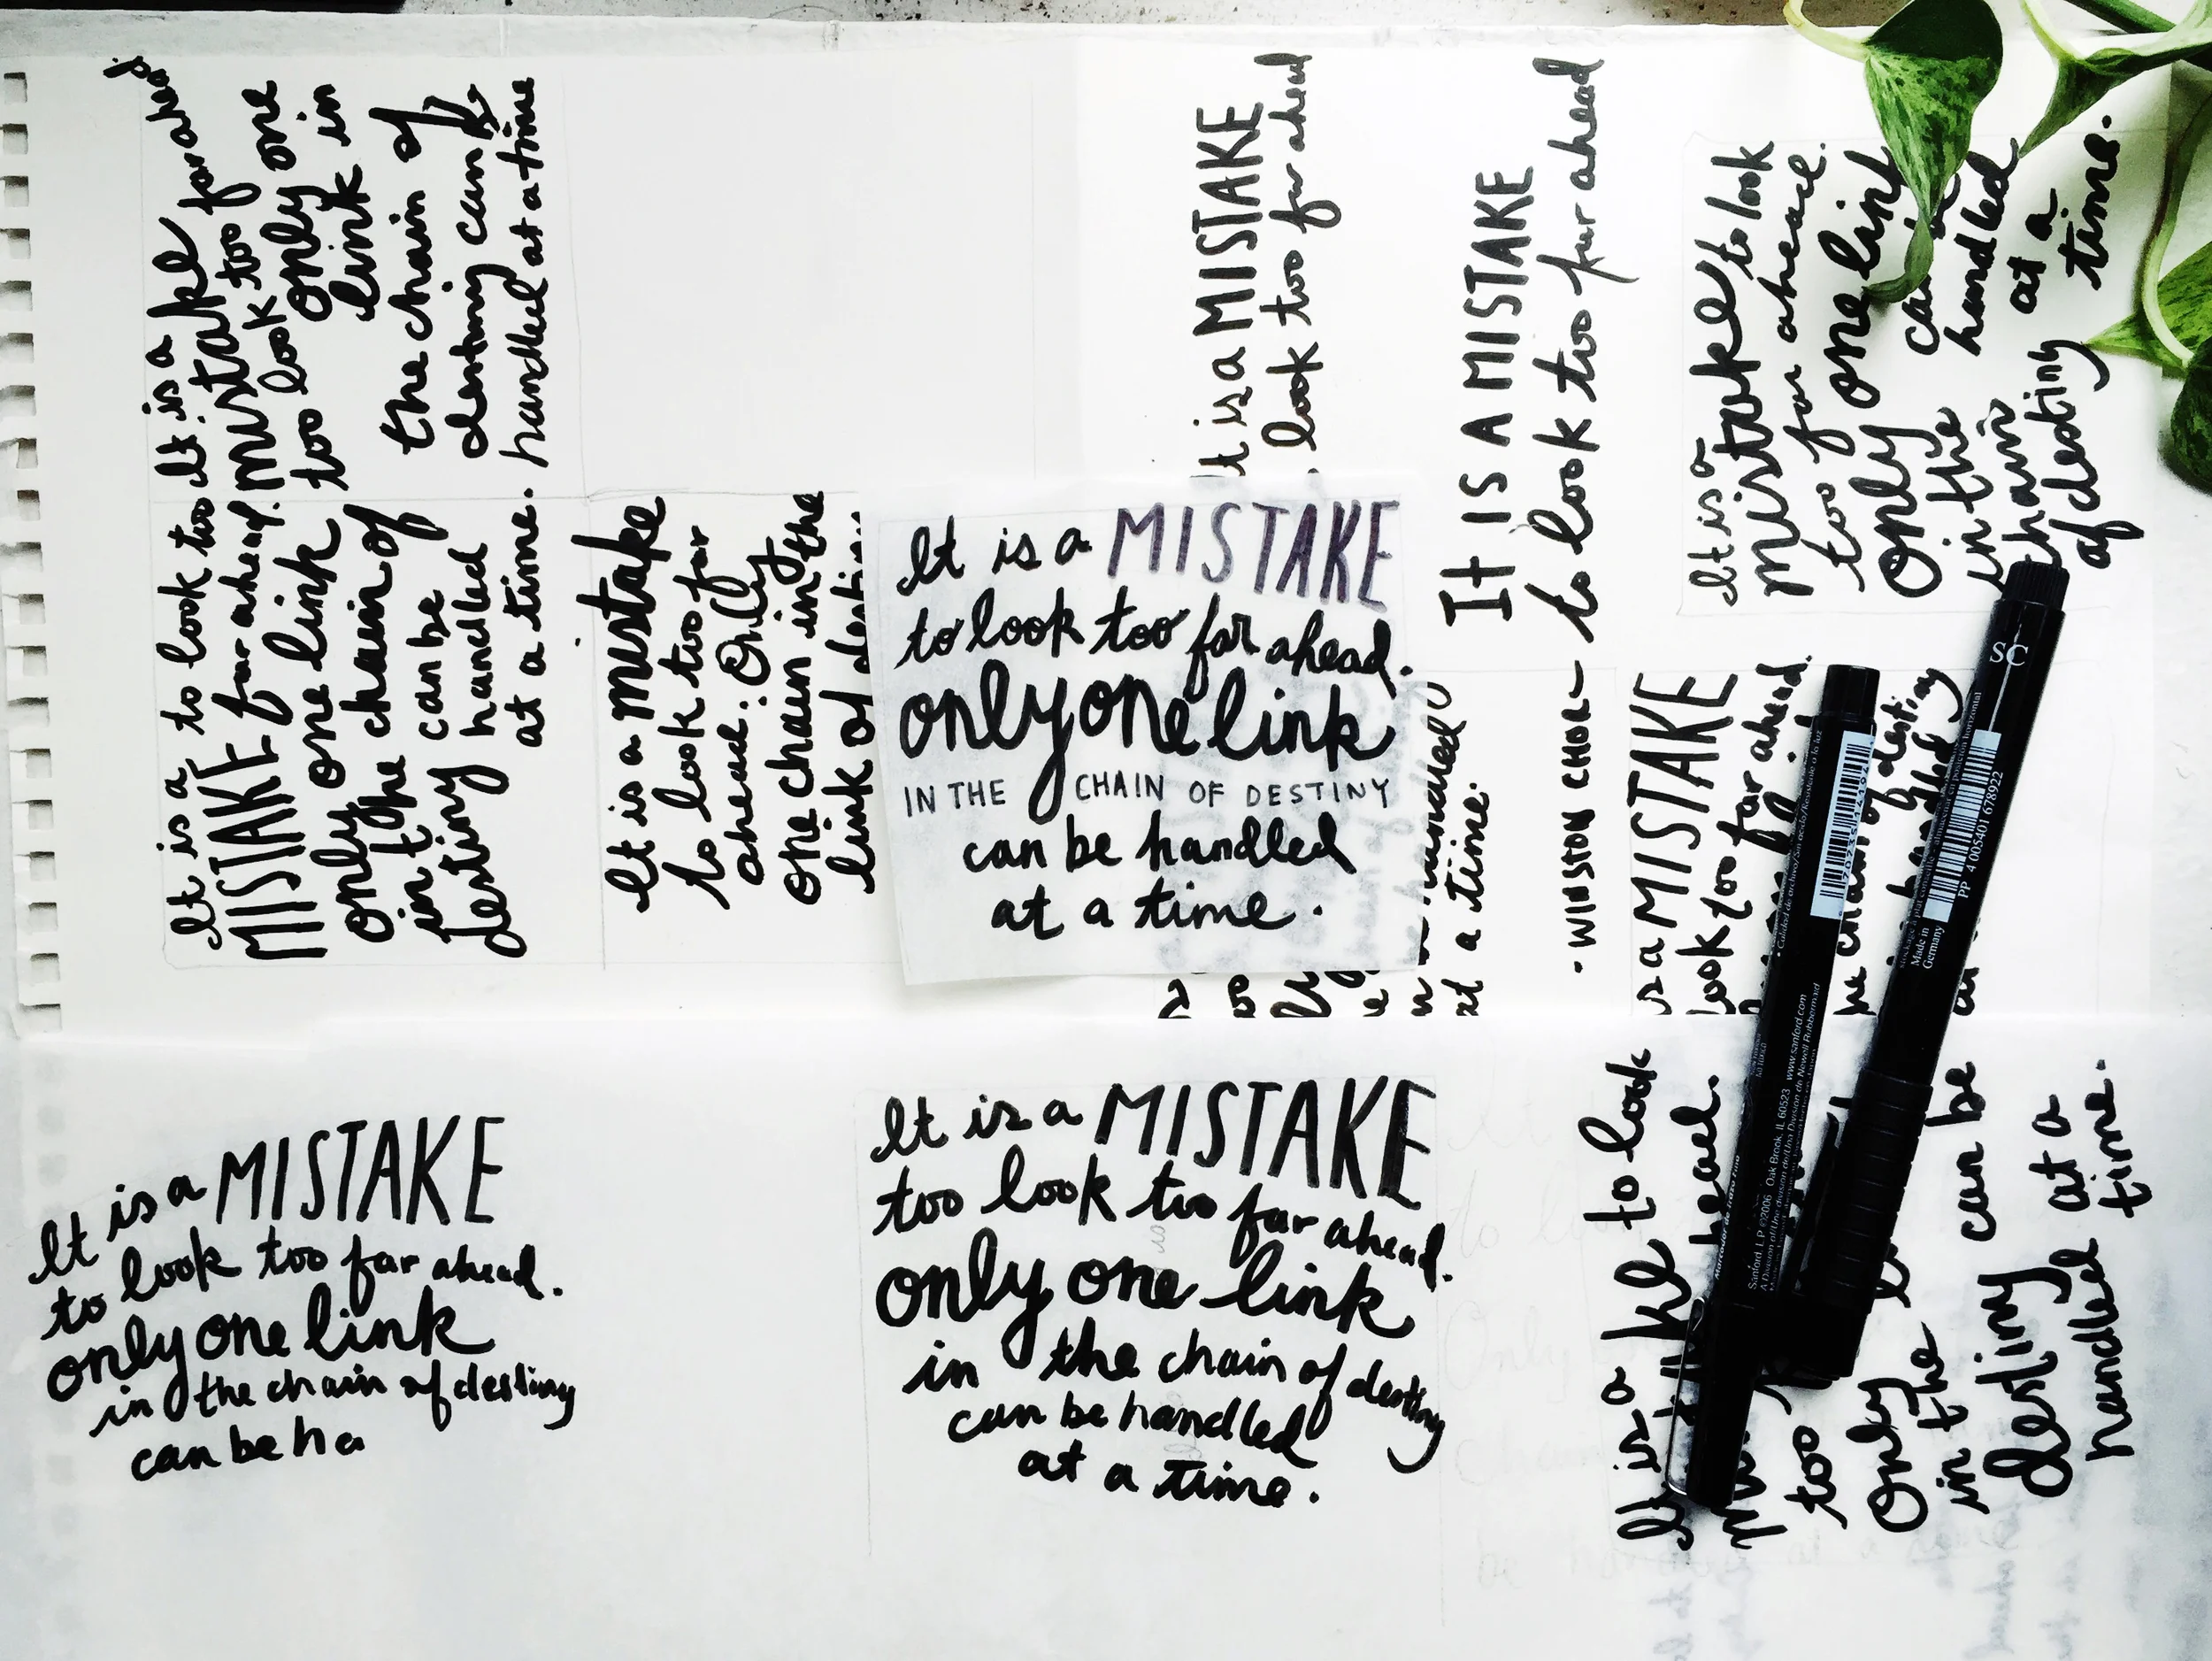 It is a
mistake far ahead.
must too one
too look only in
link
the chain of
destiny can be
handled at a time
It is a to look too
MISTAKE far ahead.
only one link
in the chain of
destiny can be
handled
at a time.
It is a mistake
to look too far
ahead. Only
one chain in the
link of destiny
It is a MISTAKE
look too far ahead
IT IS A MISTAKE
to look too far ahead
- WINSTON CHOR
It is a
mistake to look
too far ahead.
Only one link
in the
chain handled
of destiny at a
time.
It is a MISTAKE
to look too far ahead.
only one link
IN THE CHAIN OF DESTINY
can be handled
at a time.
be handled
at a time.
is a MISTAKE
look too far ahead.
the chain of destiny
SC
Made in
Germany
PP 4 005401 678922
It is a MISTAKE
to look too far ahead.
only one link
in the chain of destiny
can be ha
It is a MISTAKE
too look too far ahead.
only one link
in the chain of destiny
can be handled
at a time.
It is a to look
too
Only
in the can be
destiny at a
handled time.
Sanford, L.P. ©2006 Oak Brook, IL 60523 www.sanford.com